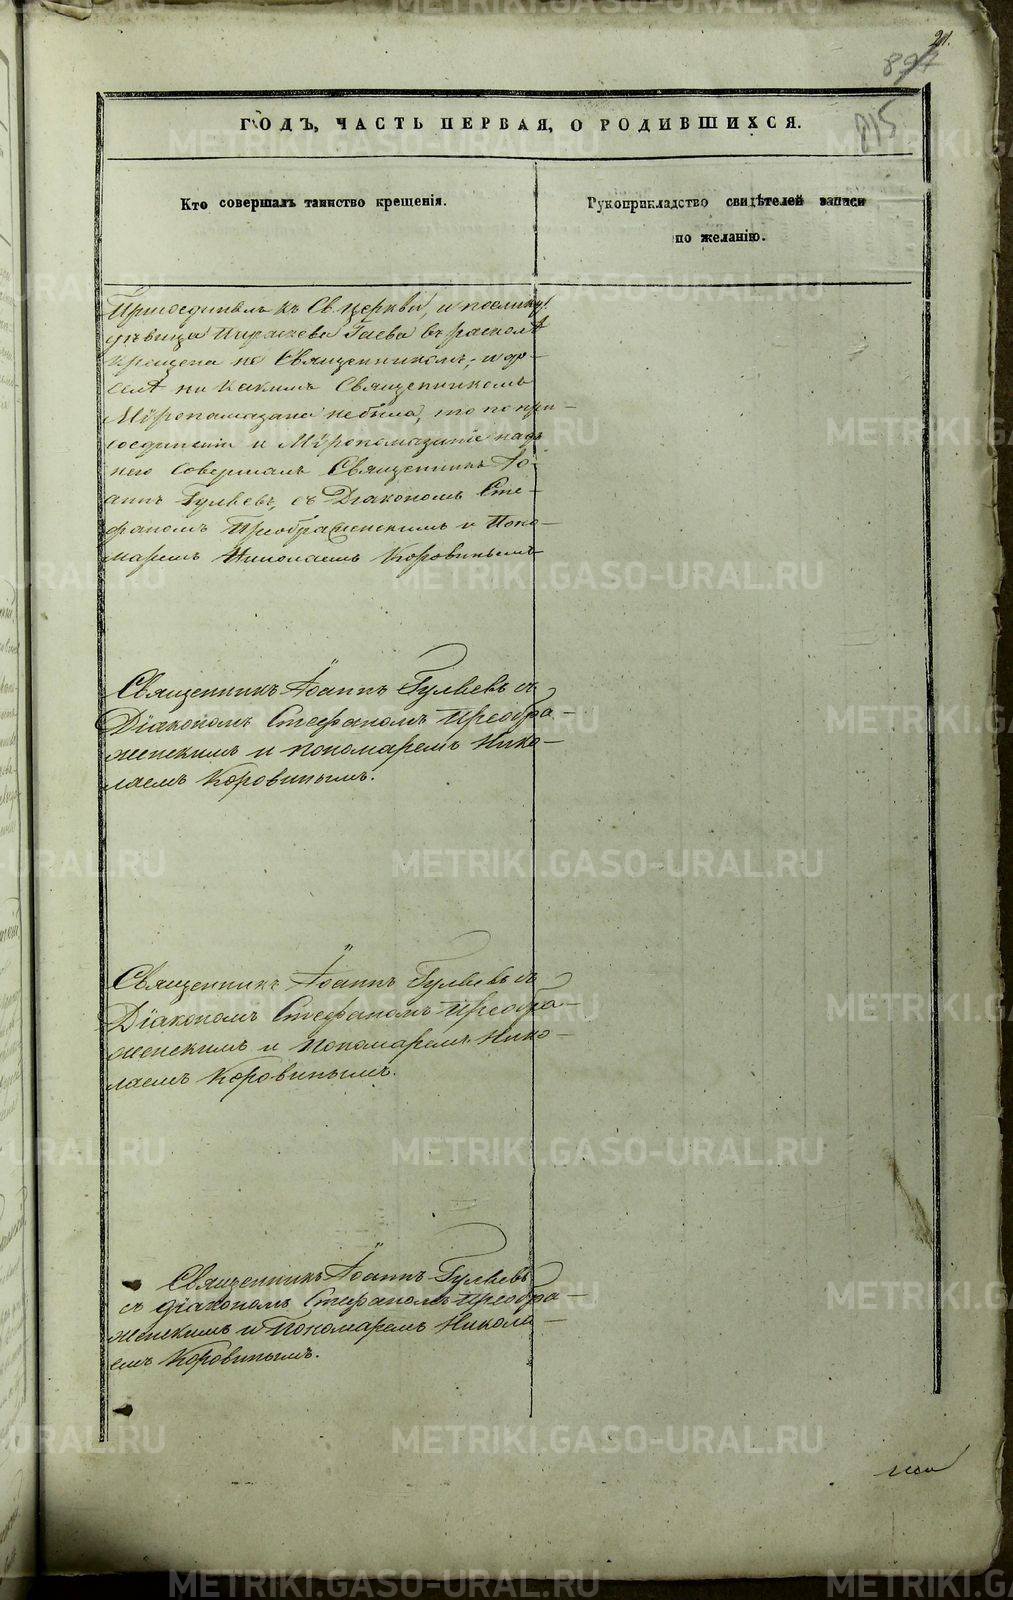 21.
894
815
ГОДЪ, ЧАСТЬ ПЕРВАЯ, О РОДИВШИХСЯ.
Кто совершалъ таинство крещенія.
Рукоприкладство свидѣтелей записи
по желанію.
Присоединилъ къ Св. Церкви, и поелику
дѣвица Гаева въ расколѣ
крещена не Священникомъ, и до-
селѣ ни какимъ Священникомъ
Мѵропомазана не была, то по при-
соединеніи и Мѵропомазаніе надъ
нею совершалъ Священникъ Іо-
аннъ Гуляевъ, съ Діакономъ Сте-
фаномъ Преображенскимъ и Поно-
маремъ Николаемъ Коровинымъ
Священникъ Іоаннъ Гуляевъ съ
Діакономъ Стефаномъ Преобра-
женскимъ и пономаремъ Нико-
лаемъ Коровинымъ.
Священникъ Іоаннъ Гуляевъ съ
Діакономъ Стефаномъ Преобра-
женскимъ и Пономаремъ Нико-
лаемъ Коровинымъ.
Священникъ Іоаннъ Гуляевъ
съ діакономъ Стефаномъ Преобра-
женскимъ и Пономаремъ Никола-
емъ Коровинымъ.
METRIKI.GASO-URAL.RU